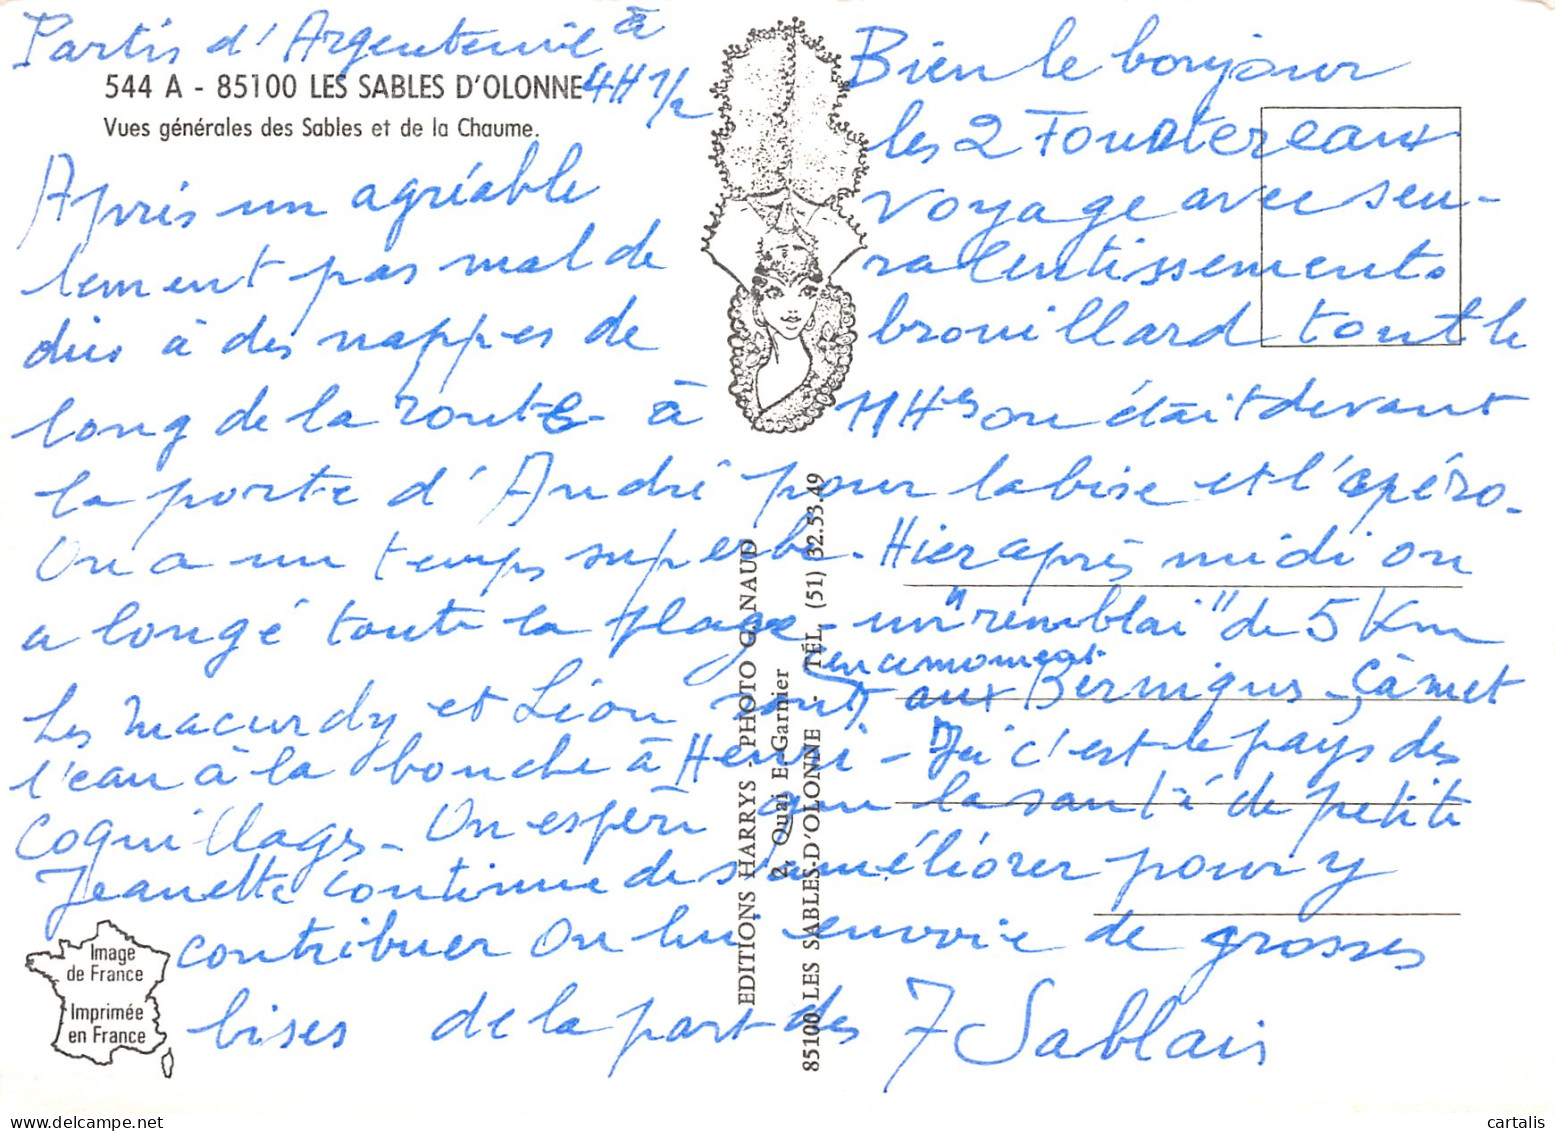 Partis d'Argenteuil à
4H 1/2
544 A - 85100 LES SABLES D'OLONNE
Vues générales des Sables et de la Chaume.
Bien le bonjour
les 2
Après un agréable voyage avec seu-
lement pas mal de ralentissements
dus à des nappes de brouillard tout le
long de la route - à 11Hes on était devant
la porte d'André pour la bise et l'apéro.
On a un temps superbe. Hier après midi on
a longé toute la plage - un "remblai" de 5 Km
en ce moment
Les Macurdy et Léon sont aux Bernigus - Çà met
l'eau à la bouche à Henri - Ici c'est le pays des
coquillages - On espère que la santé de petite
Jeanette continue de s'améliorer pour y
contribuer On lui envoie de grosses
bises de la part des 7 Sablais
EDITIONS HARRYS - PHOTO G. NAUD
2, Quai E. Garnier
85100 LES SABLES-D'OLONNE - TÉL. (51) 32.53.49
Image
de France
Imprimée
en France
cartalis
www.delcampe.net